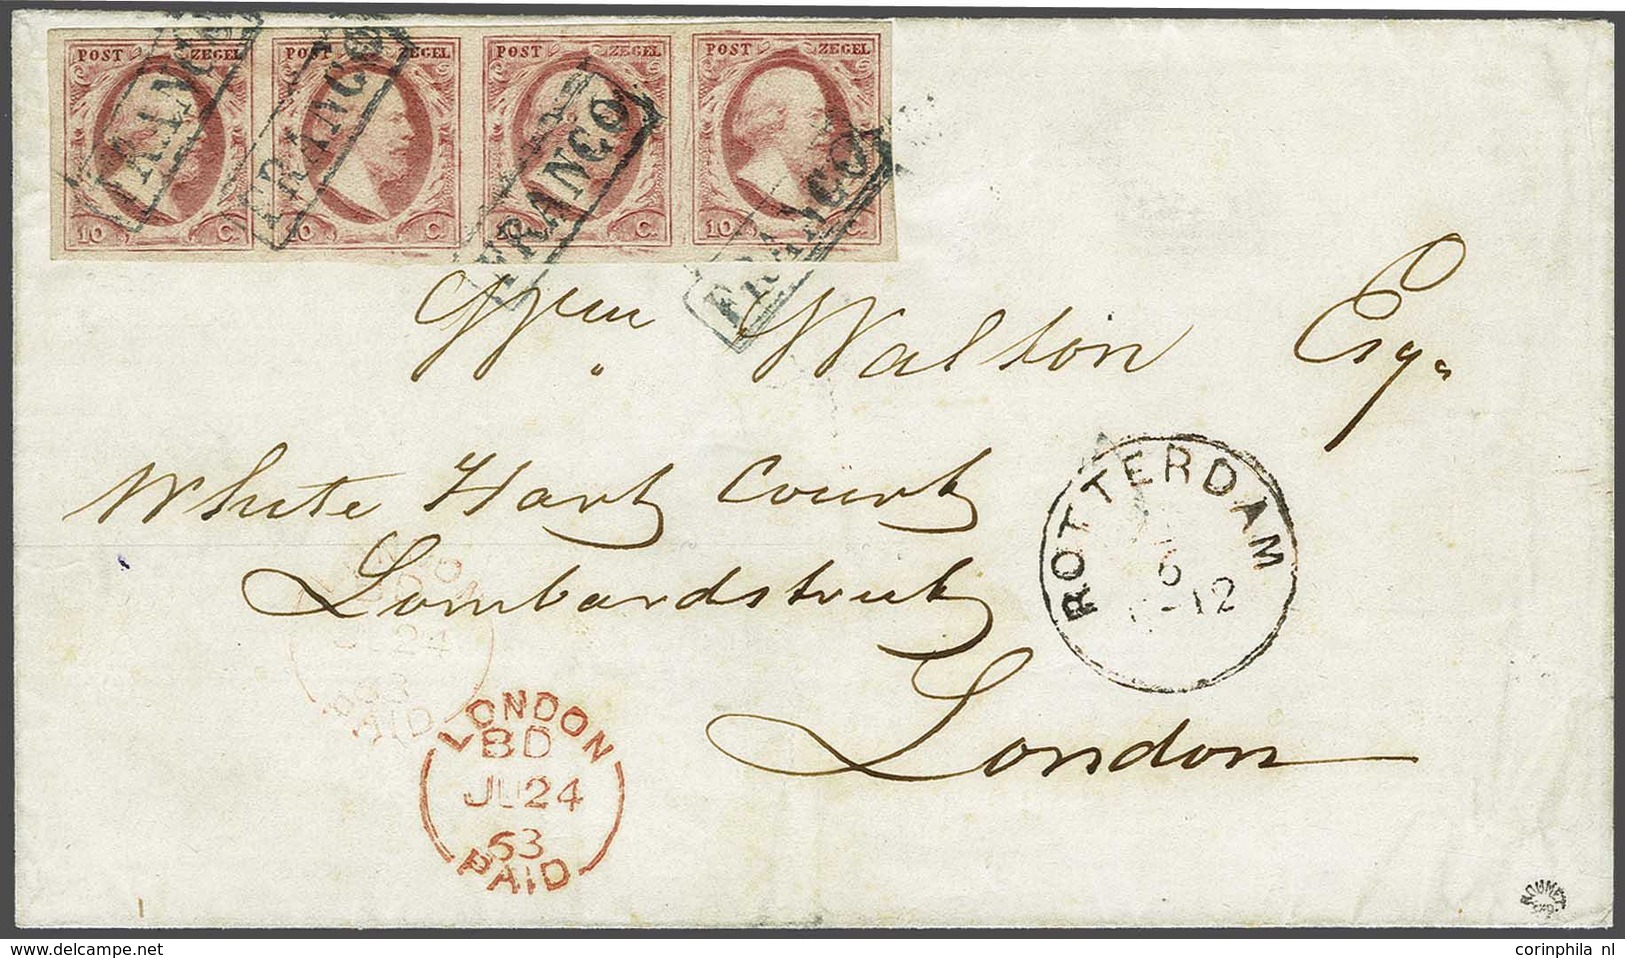 POST ZEGEL POST ZEGEL POST ZEGEL POST ZEGEL
10 C. 10 C. C. 10 C.
FRANCO FRANCO FRANCO FRANCO
Wm Walton Esq.
White Hart Court
Lombardstreet
London
ROTTERDAM
6
-12
24
PAID
LONDON
BD
JU 24
63
PAID
ROUMET
corinphila nl
delcampe.net